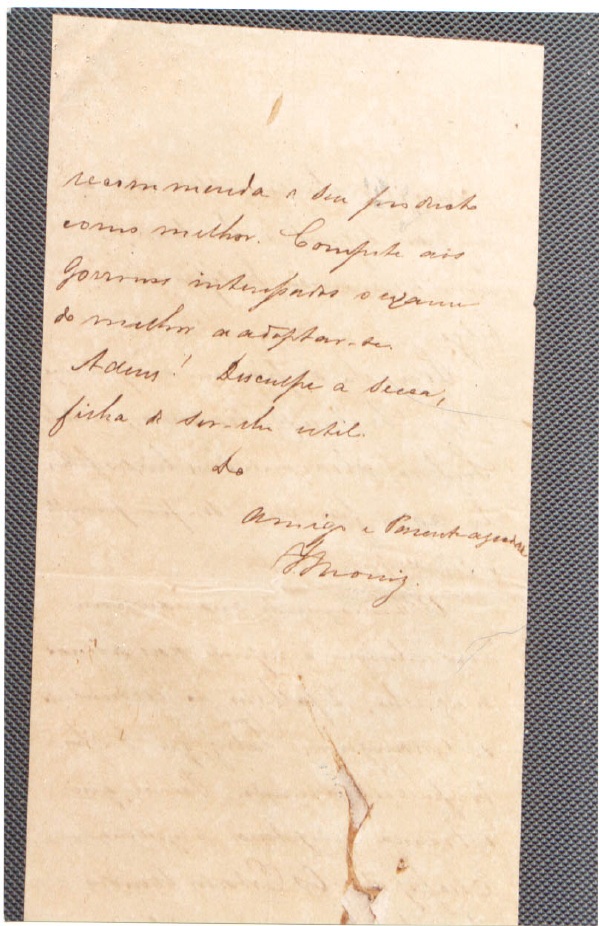 recommenda o seu producto
como melhor. Compete aos
Governos interessados o exame
do melhor a adoptar-se.
Adeus! Desculpe a secca,
filha de ser-lhe util.
Do
Amigo e Parente